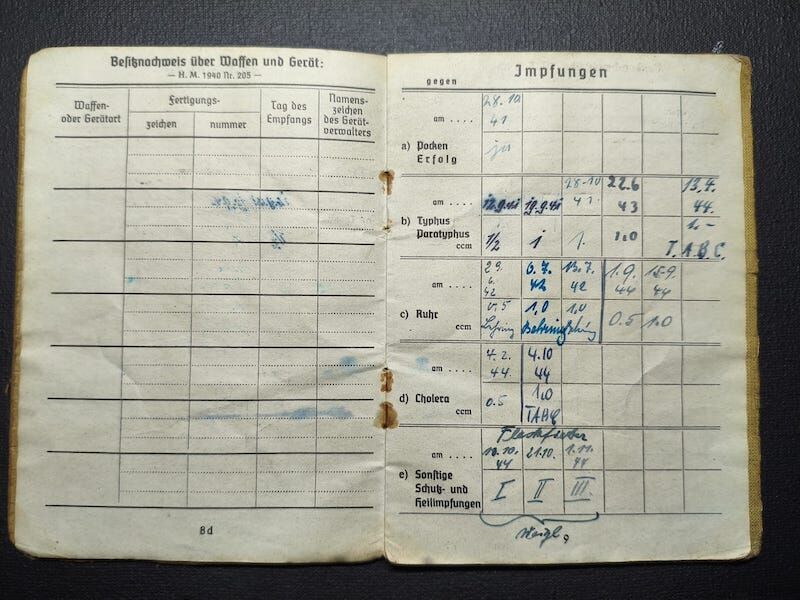 Besitznachweis über Waffen und Gerät:
— H. M. 1940 Nr. 205 —
Waffen-
oder Gerätart
Fertigungs-
zeichen
nummer
Tag des
Empfangs
Namens-
zeichen
des Gerät-
verwalters
8d
gegen
Impfungen
28. 10
am . . . . 41
a) Pocken
Erfolg ja
28-10 22.6 13.4.
am . . . . 12.9.41 19.9.41 41 43 44.
b) Typhus
Paratyphus
ccm 1/2 1 1. 1,0 1.-
T.A.B.C.
29. 6. 7. 13.7. 1.9. 15.9.
am . . . . 6. 42 42 42 44 44
c) Ruhr
ccm 0.5 1,0 1,0 0.5 1.0
Behring
7.2. 4.10
am . . . . 44. 44
d) Cholera
ccm 0.5 1,0
TABC
Fleckfieber
am . . . . 10.10. 44 21.10. 1.11. 44
e) Sonstige
Schutz- und
Heilimpfungen
I II III.